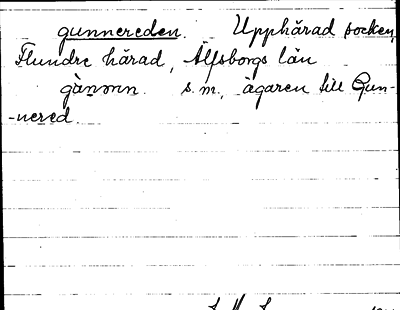 gunnereden. Upphärad socken,
Flundre härad, Älfsborgs län
s. m., ägaren till Gun-
-nered.